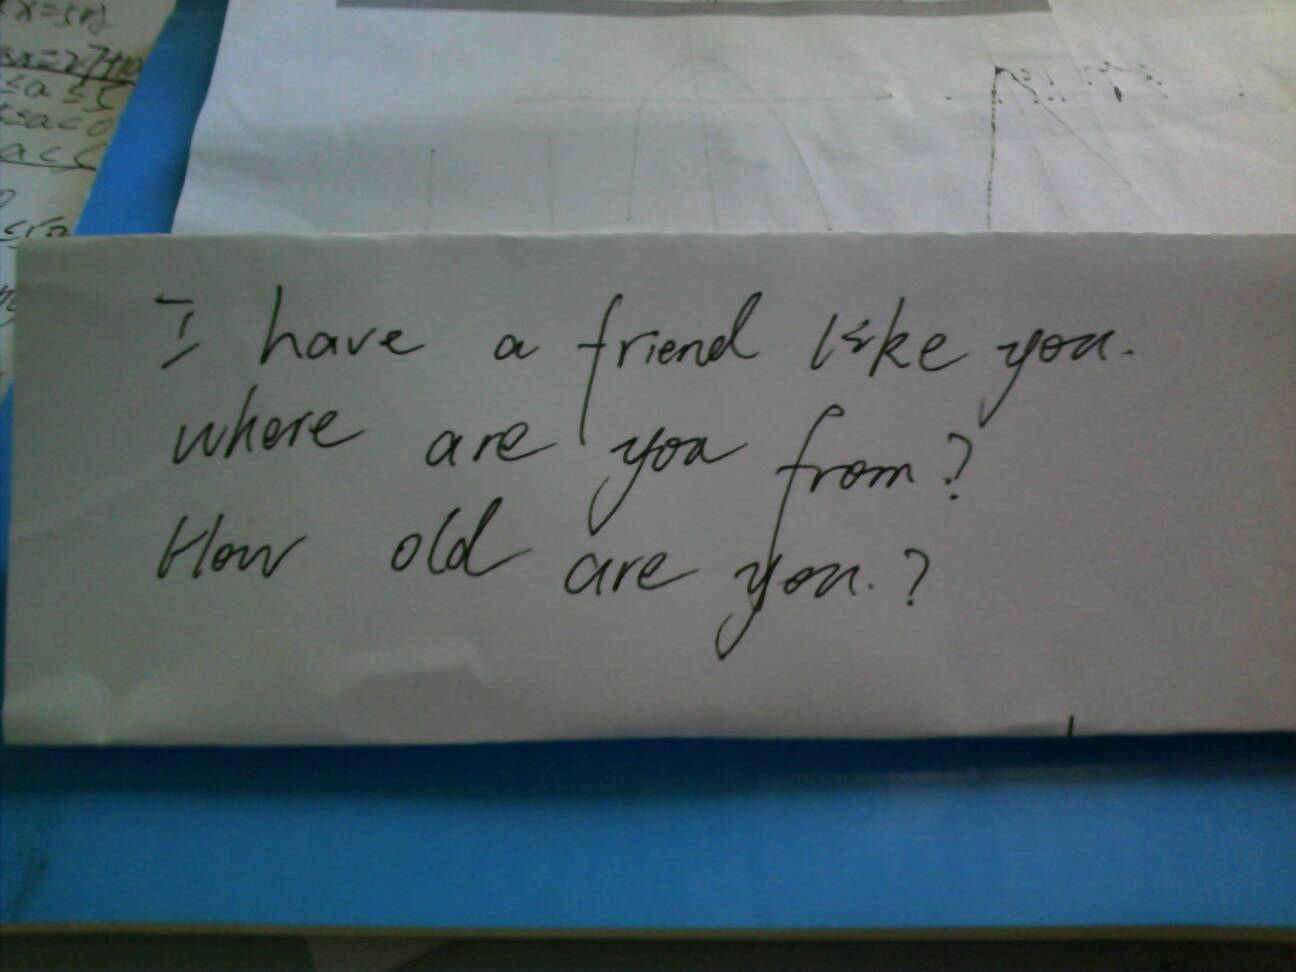 I have a friend like you.
where are you from?
How old are you.?